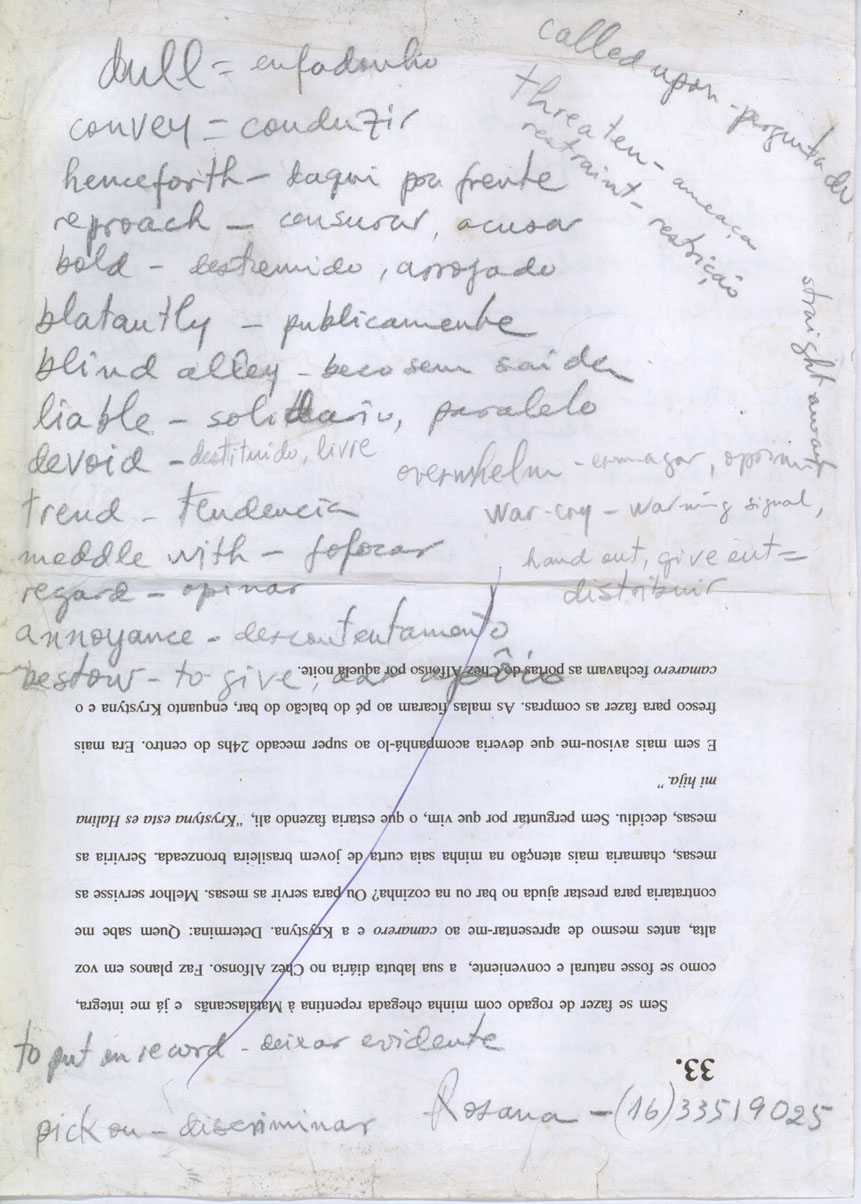 dull = enfadonho
convey = conduzir
henceforth – daqui pra frente
reproach – censurar, acusar
bold – destemido, arrojado
blatantly – publicamente
blind alley – beco sem saida
liable – solidário, paralelo
devoid – destituido, livre
trend – tendencia
meddle with – fofocar
regard – opinar
annoyance – descontentamento
bestow – to give, dar apôio
called upon – perguntado
threaten – ameaça
restraint – restrição
straight away
overwhelm – esmagar, oprimir
war-cry – warning signal,
hand out, give out =
distribuir
to put on record – deixar evidente
pick on – discriminar
Rosana – (16) 33519025
33.
Sem se fazer de rogado com minha chegada repentina à Matalascanãs e já me integra,
como se fosse natural e conveniente, a sua labuta diária no Chez Alfonso. Faz planos em voz
alta, antes mesmo de apresentar-me ao camarero e a Krystyna. Determina: Quem sabe me
contrataria para prestar ajuda no bar ou na cozinha? Ou para servir as mesas. Melhor servisse as
mesas, chamaria mais atenção na minha saia curta de jovem brasileira bronzeada. Serviria as
mesas, decidiu. Sem perguntar por que vim, o que estaria fazendo ali, "Krystyna esta es Halina
mi hija."
E sem mais avisou-me que deveria acompanhá-lo ao super mecado 24hs do centro. Era mais
fresco para fazer as compras. As malas ficaram ao pé do balcão do bar, enquanto Krystyna e o
camarero fechavam as portas do Chez Alfonso por aquela noite.